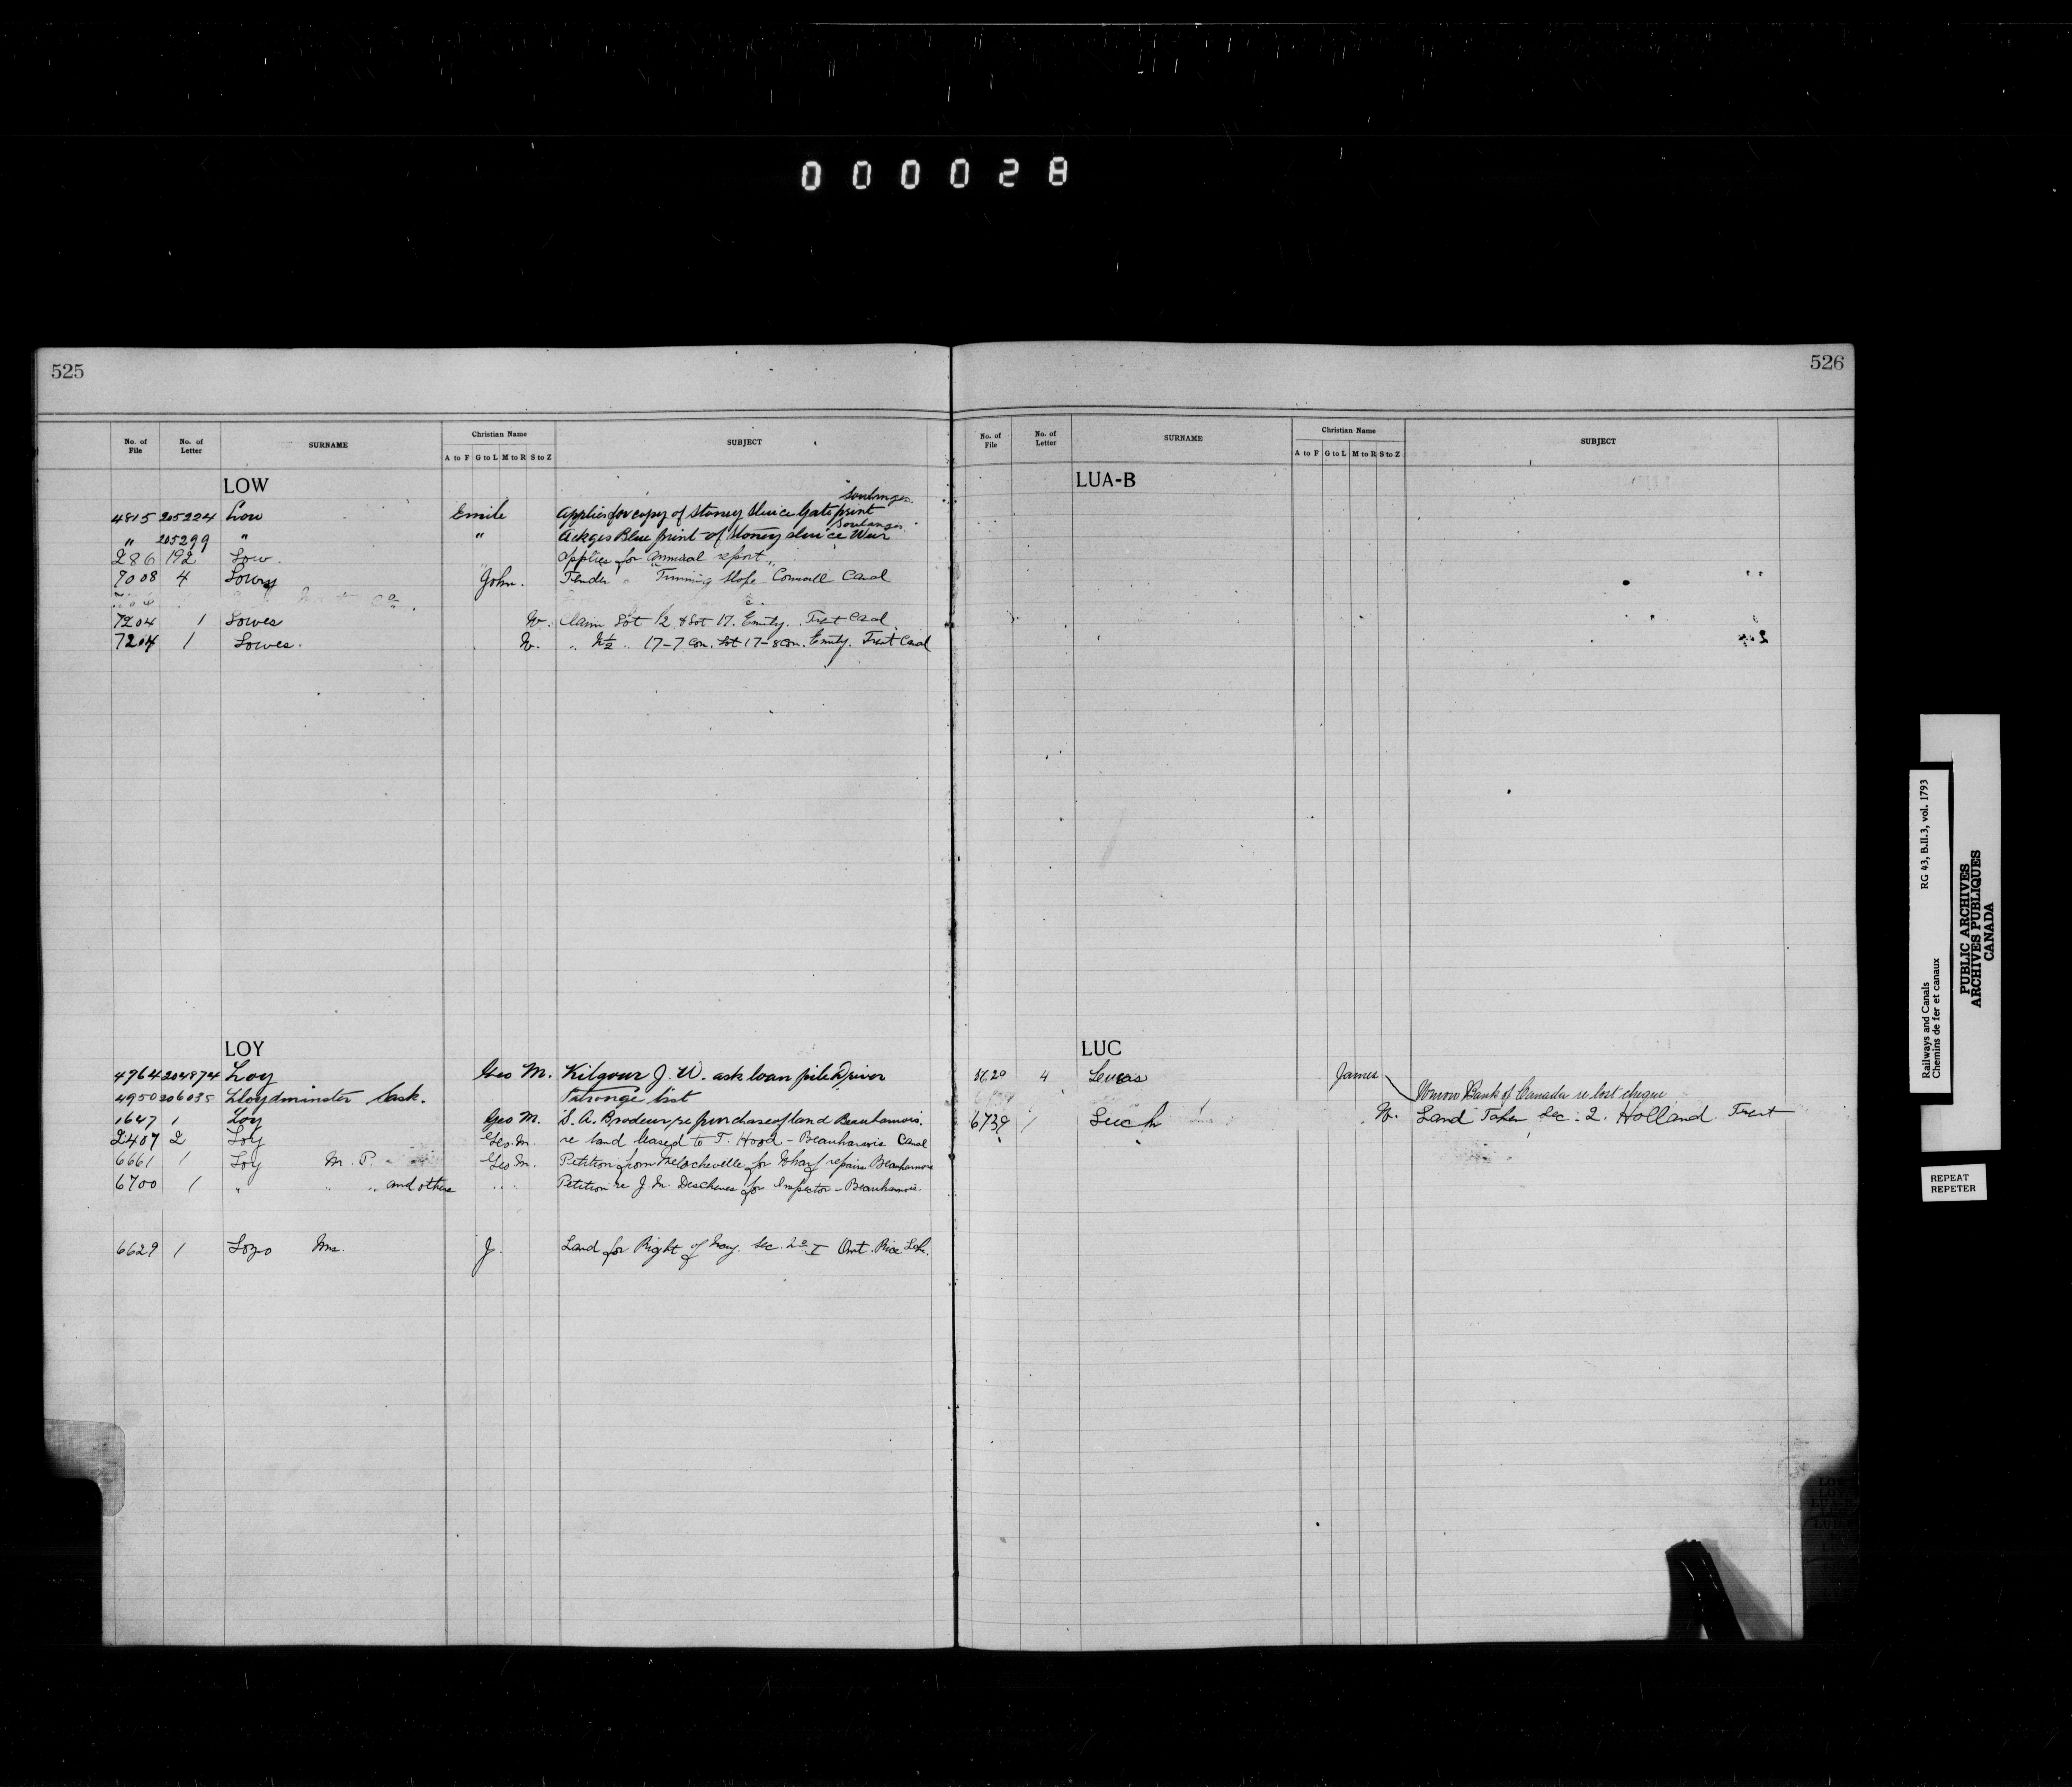 000028
525
No. of File No. of Letter SURNAME Christian Name SUBJECT
A to F G to L M to R S to Z
LOW
Soulanges
4815 205224 Low Emile Applies for copy of Stoney Sluice Gate print
Soulanges
" 205299 " " Ackges Blue print of Stoney sluice Weir
286 192 Low. Applies for Annual report
7008 4 Lowry John. Tender " Trimming Slope Cornwall Canal
7204 1 Lowes W. Claim Lot 12 & Lot 17. Emily. Trent Canal
7204 1 Lowes. W. " N½ " 17-7 Con. Lot 17-8 Con. Emily. Trent Canal
LOY
4964 204874 Loy Geo M. Kilgour J. W. ask loan pile Driver
4950 206035 Lloydminster Sask. Patronge list
1647 1 Loy Geo M. S. A. Brodeur, re purchase of land Beauharnois.
2407 2 Loy Geo. M. re land leased to T. Hood - Beauharnois Canal
6661 1 Loy M. P. Geo M. Petition from Melocheville for Wharf repairs Beauharnois
6700 1 " " " and others " " Petition re J. M. Deschenes for Inspector - Beauharnois.
6629 1 Mrs. J. Land for Right of Way. Sec. Ont. Rice Lake.
526
No. of File No. of Letter SURNAME Christian Name SUBJECT
A to F G to L M to R S to Z
LUA-B
LUC
5620 4 Lucas James
Union Bank of Canada re lost cheque
6739 1 Luch W. Land Taken Sec. 2. Holland Trent
Railways and Canals RG 43, B.II.3, vol. 1793
Chemins de fer et canaux
PUBLIC ARCHIVES
ARCHIVES PUBLIQUES
CANADA
REPEAT
REPETER